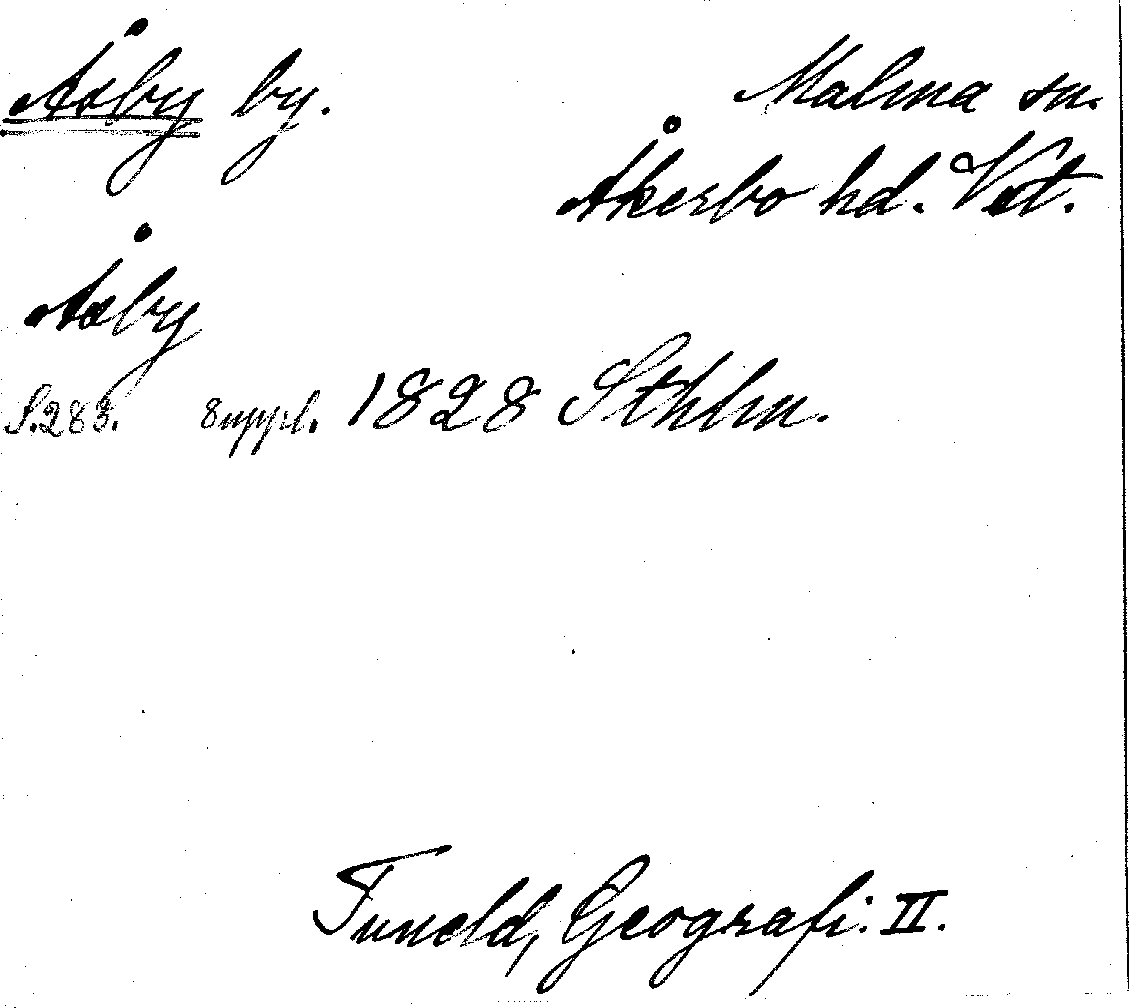 Åsby by.
Malma sn.
Åkerbo hd. Vst.
Åsby
S. 283. Suppl. 1828 Sthlm.
Tuneld, Geografi. II.